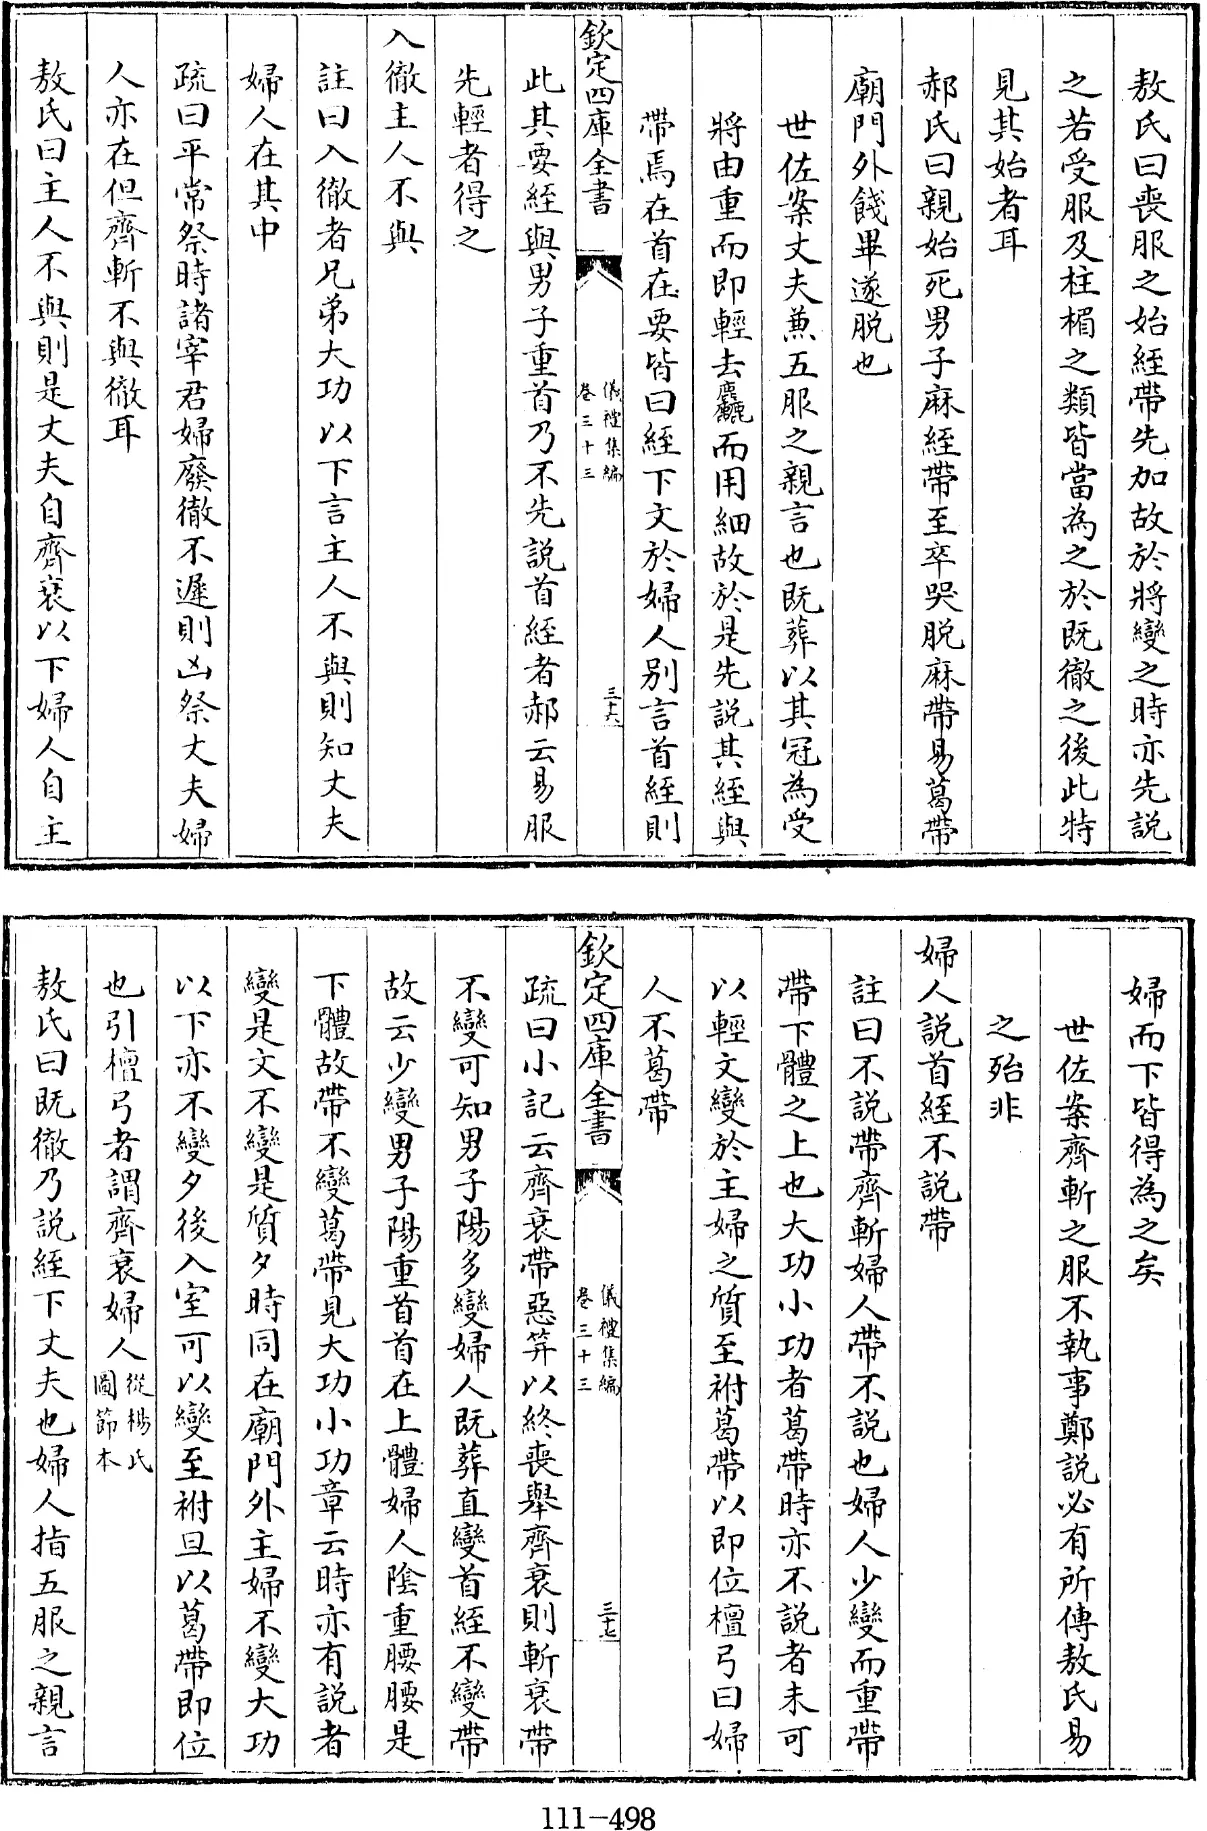 敖氏曰喪服之始絰帶先加故於將變之時亦先說
之若受服及柱楣之類皆當為之於既徹之後此特
見其始者耳
郝氏曰親始死男子麻絰帶至卒哭脫麻帶易葛帶
廟門外餞畢遂脫也
世佐案丈夫兼五服之親言也既葬以其冠為受
將由重而即輕去麤而用細故於是先說其絰與
帶焉在首在要皆曰絰下文於婦人別言首絰則
欽定四庫全書
儀禮集編
卷三十三
三十六
此其要絰與男子重首乃不先說首絰者郝云易服
先輕者得之
入徹主人不與
註曰入徹者兄弟大功以下言主人不與則知丈夫
婦人在其中
疏曰平常祭時諸宰君婦廢徹不遲則凶祭丈夫婦
人亦在但齊斬不與徹耳
敖氏曰主人不與則是丈夫自齊衰以下婦人自主
婦而下皆得為之矣
世佐案齊斬之服不執事鄭説必有所傳敖氏易
之殆非
婦人説首絰不説帶
註曰不説帶齊斬婦人帶不説也婦人少變而重帶
帶下體之上也大功小功者葛帶時亦不説者未可
以輕文變於主婦之質至祔葛帶以即位檀弓曰婦
人不葛帶
欽定四庫全書
儀禮集編
卷三十三
三十七
疏曰小記云齊衰帶惡笄以終喪舉齊衰則斬衰帶
不變可知男子陽多變婦人既葬直變首絰不變帶
故云少變男子陽重首首在上體婦人陰重腰腰是
下體故帶不變葛帶見大功小功章云時亦有説者
變是文不變是質夕時同在廟門外主婦不變大功
以下亦不變夕後入室可以變至祔旦以葛帶即位
也引檀弓者謂齊衰婦人從楊氏圖節本
敖氏曰既徹乃説絰下丈夫也婦人指五服之親言
111-498